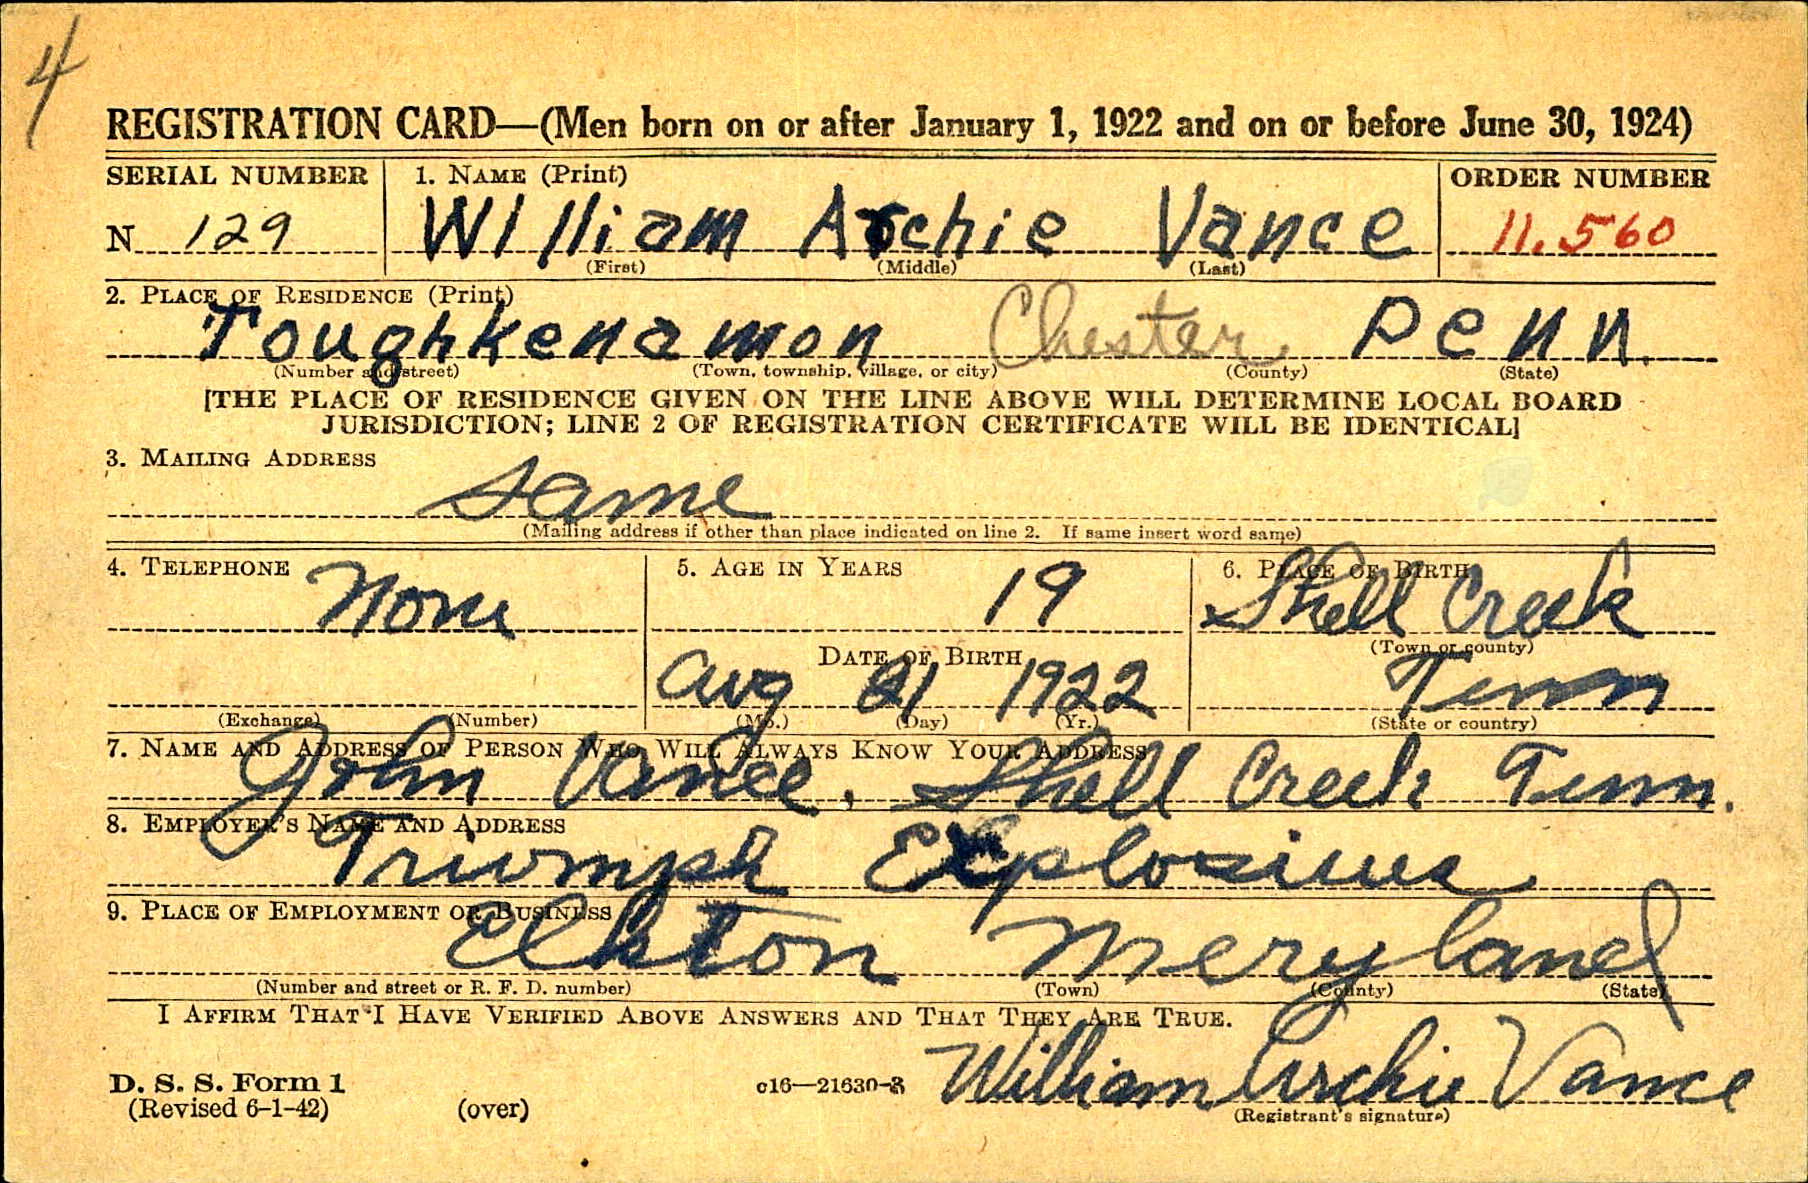 4
REGISTRATION CARD—(Men born on or after January 1, 1922 and on or before June 30, 1924)
SERIAL NUMBER 1. NAME (Print) ORDER NUMBER
N 129 William Archie Vance 11,560
(First) (Middle) (Last)
2. PLACE OF RESIDENCE (Print)
Toughkenamon Chester Penn.
(Number and street) (Town, township, village, or city) (County) (State)
[THE PLACE OF RESIDENCE GIVEN ON THE LINE ABOVE WILL DETERMINE LOCAL BOARD
JURISDICTION; LINE 2 OF REGISTRATION CERTIFICATE WILL BE IDENTICAL]
3. MAILING ADDRESS
Same
(Mailing address if other than place indicated on line 2. If same insert word same)
4. TELEPHONE 5. AGE IN YEARS 6. PLACE OF BIRTH
None 19 Shell Creek
(Town or county)
DATE OF BIRTH
Aug 21 1922 Tenn
(Exchange) (Number) (Mo.) (Day) (Yr.) (State or country)
7. NAME AND ADDRESS OF PERSON WHO WILL ALWAYS KNOW YOUR ADDRESS
John Vance, Shell Creek Tenn.
8. EMPLOYER'S NAME AND ADDRESS
Triumph Explosives
9. PLACE OF EMPLOYMENT OR BUSINESS
Elkton Meryland
(Number and street or R. F. D. number) (Town) (County) (State)
I AFFIRM THAT I HAVE VERIFIED ABOVE ANSWERS AND THAT THEY ARE TRUE.
D. S. S. Form 1 c16—21630-3 William Archie Vance
(Revised 6-1-42) (over) (Registrant's signature)